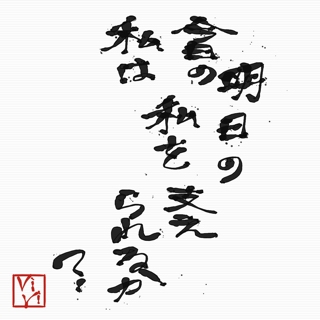 今日の
私は
明日の
私を
支え
られるか
ViVi